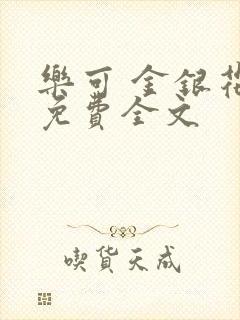 樂可 金銀花
免費全文
喫貨天成